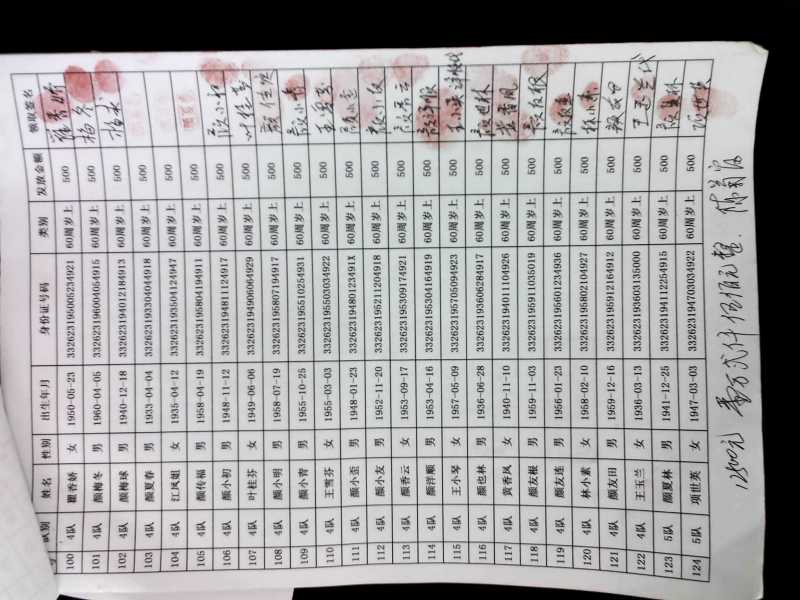 队别 姓名 性别 出生年月 身份证号码 类别 发放金额 领取签名
100 4队 瞿香娇 女 1950-05-23 332623195005234921 60周岁上 500
101 4队 颜梅冬 男 1960-04-05 332623196004054915 60周岁上 500 梅冬
102 4队 颜梅球 男 1940-12-18 332623194012184913 60周岁上 500 梅球
103 4队 颜夏春 男 1933-04-04 332623193304044918 60周岁上 500
104 4队 江凤姐 女 1935-04-12 332623193504124947 60周岁上 500
105 4队 颜传福 男 1958-04-19 332623195804194911 60周岁上 500
106 4队 颜小初 男 1948-11-12 332623194811124917 60周岁上 500 颜小初
107 4队 叶桂芬 女 1949-06-06 332623194906064929 60周岁上 500 叶桂芬
108 4队 颜小明 男 1958-07-19 332623195807194917 60周岁上 500
109 4队 颜小胄 男 1955-10-25 332623195510254931 60周岁上 500
110 4队 王雪芬 女 1955-03-03 332623195503034922 60周岁上 500 王雪芬
111 4队 颜小歪 男 1948-01-23 33262319480123491X 60周岁上 500 颜小歪
112 4队 颜小友 男 1952-11-20 332623195211204918 60周岁上 500 颜小友
113 4队 颜香云 女 1953-09-17 332623195309174921 60周岁上 500 颜香云
114 4队 颜洋顺 男 1953-04-16 332623195304164919 60周岁上 500 颜洋顺
115 4队 王小琴 女 1957-05-09 332623195705094923 60周岁上 500
116 4队 颜也林 男 1936-06-28 332623193606284917 60周岁上 500 颜也林
117 4队 黄香凤 女 1940-11-10 332623194011104926 60周岁上 500 黄香凤
118 4队 颜友根 男 1959-11-03 332623195911035019 60周岁上 500 颜友根
119 4队 颜友连 男 1956-01-23 332623195601234936 60周岁上 500 颜友连
120 4队 林小素 女 1958-02-10 332623195802104927 60周岁上 500 林小素
121 4队 颜友田 男 1959-12-16 332623195912164912 60周岁上 500 颜友田
122 4队 王玉兰 女 1936-03-13 332623193603135000 60周岁上 500 王玉兰代
123 5队 颜夏林 男 1941-12-25 332623194112254915 60周岁上 500 颜夏林
124 5队 项世英 女 1947-03-03 332623194703034922 60周岁上 500 项世英
12500元 壹万贰仟伍佰元整.